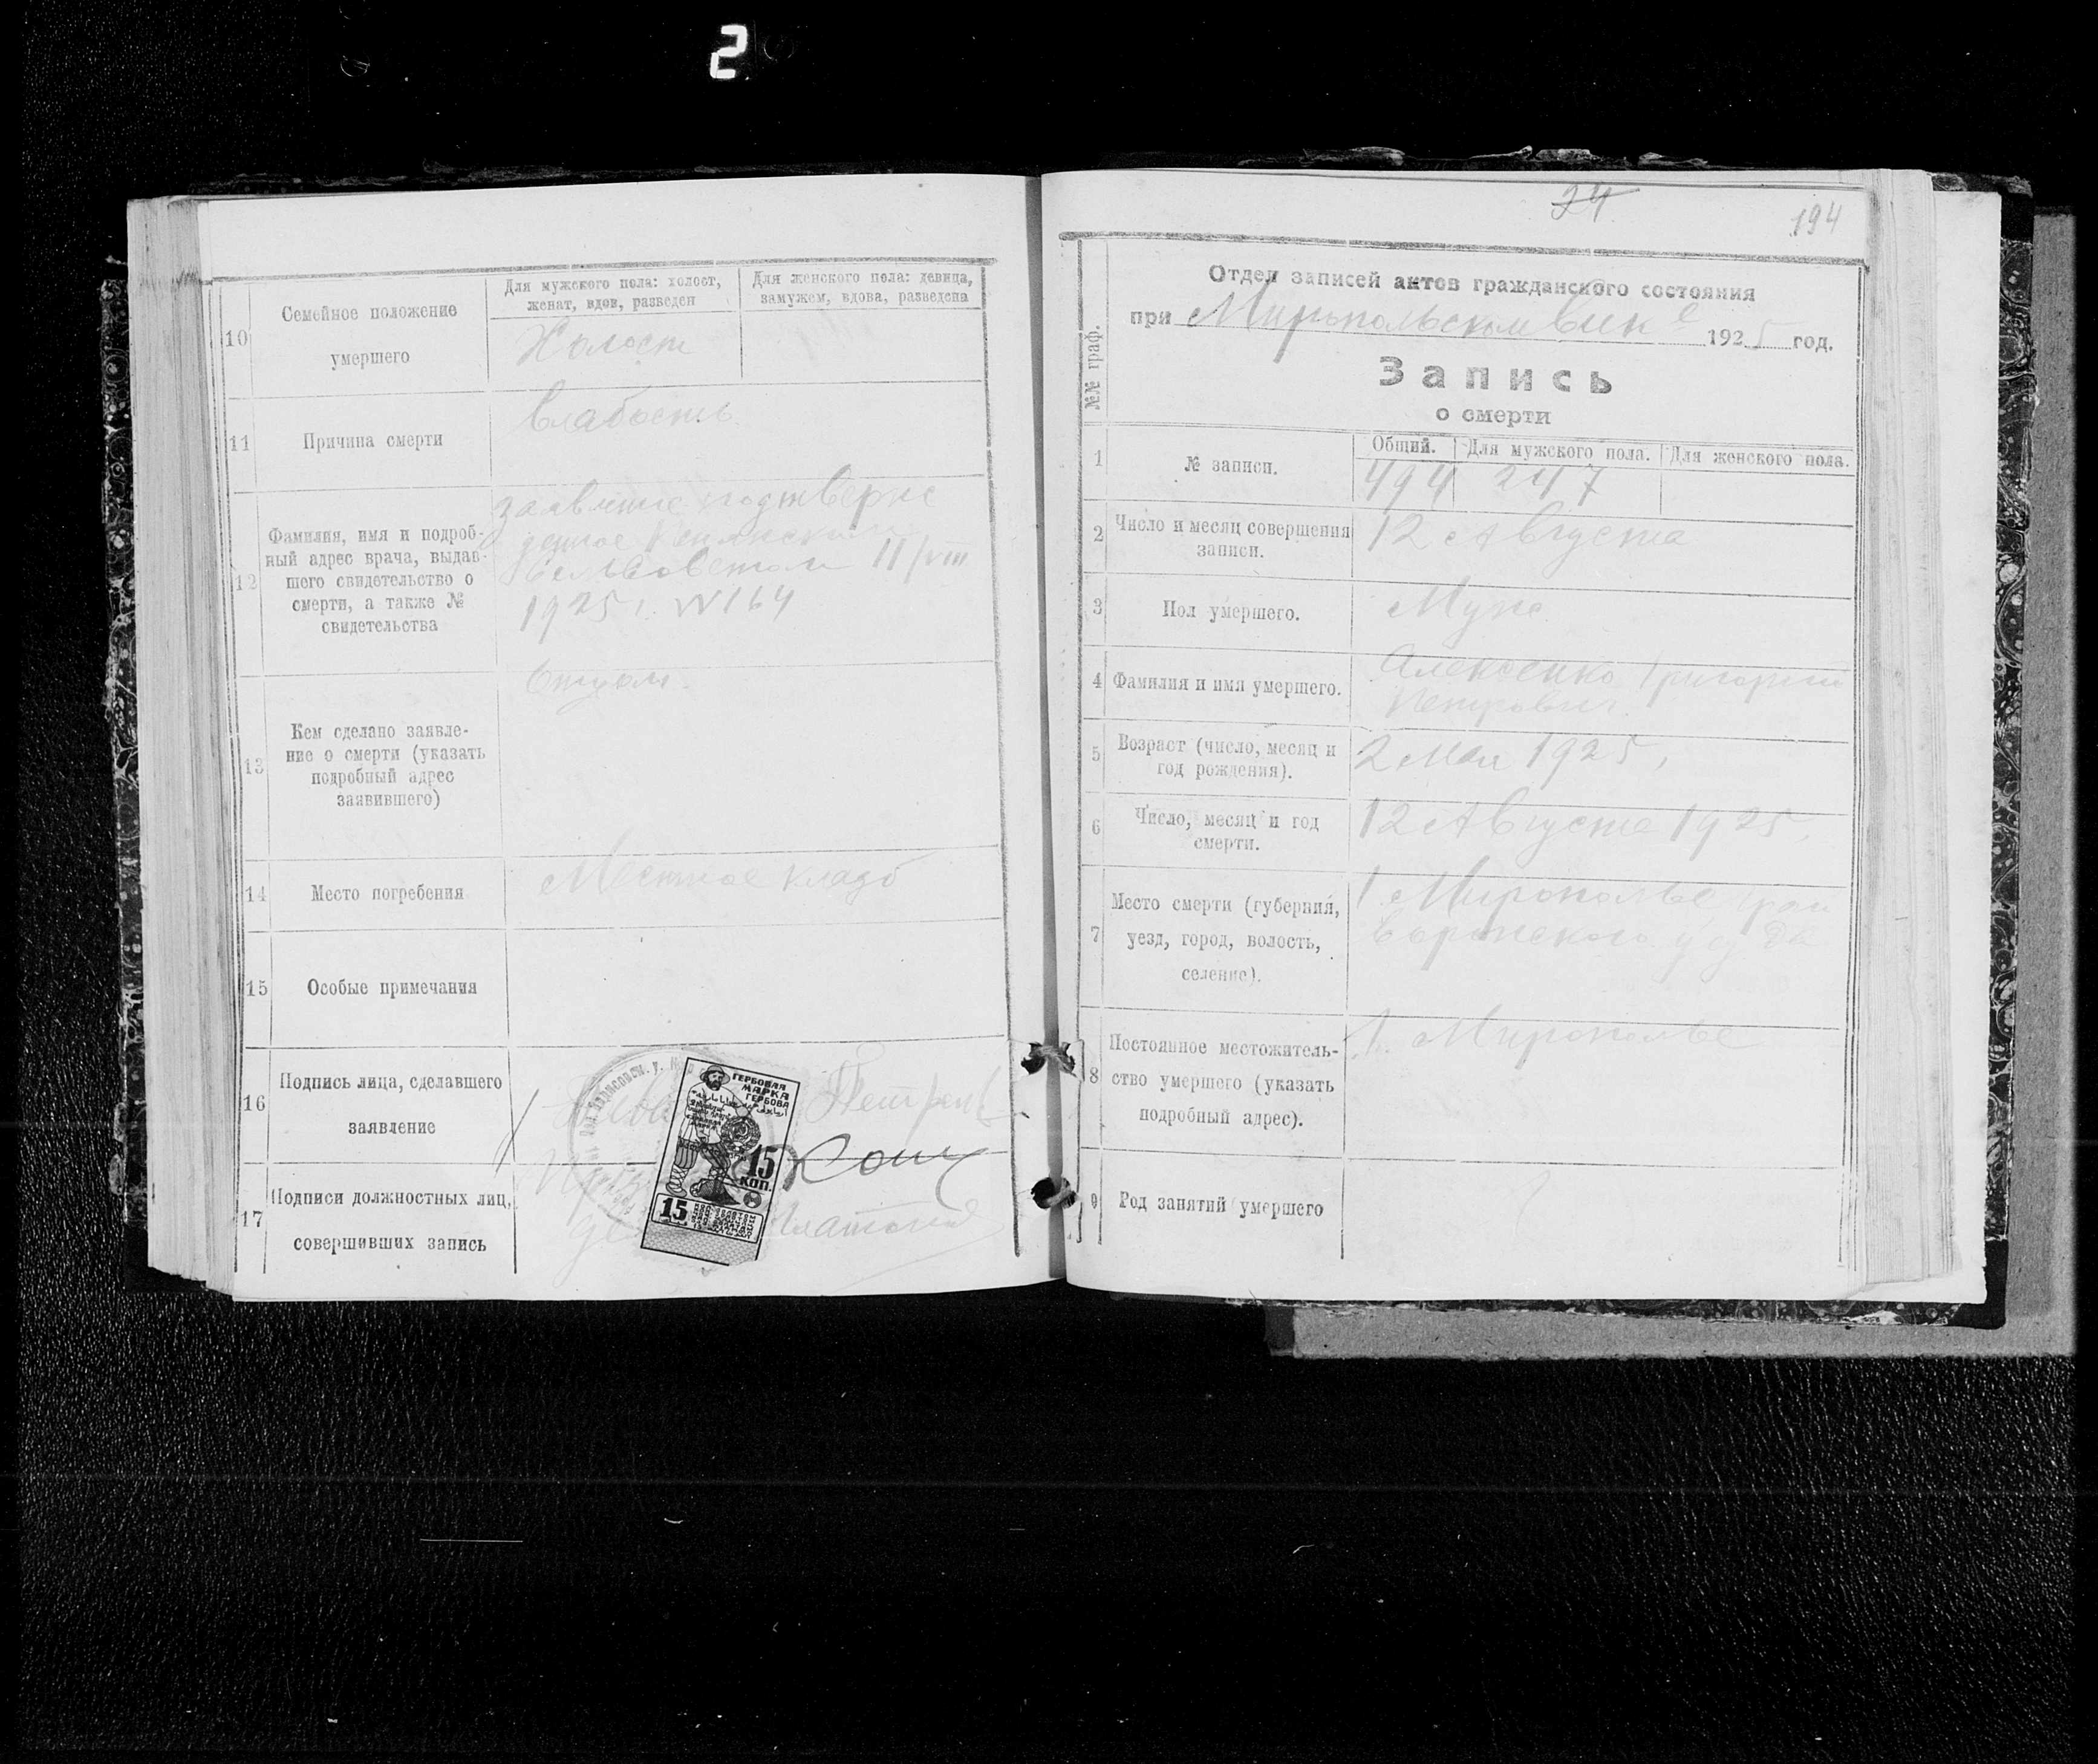 2
10
Семейное положение
умершего
Для мужского пола: холост,
женат, вдов, разведен
Для женского пола: девица,
замужем, вдова, разведена
Холост
11
Причина смерти
Слабость
12
Фамилия, имя и подроб-
ный адрес врача, выдав-
шего свидетельство о
смерти, а также №
свидетельства
заявление подтверж
денное
Сельсоветом 11/VIII
1925 г. № 164
13
Кем сделано заявле-
ние о смерти (указать
подробный адрес
заявившего)
Отцом
14
Место погребения
Местное кладб
15
Особые примечания
16
Подпись лица, сделавшего
заявление
17
Подписи должностных лиц,
совершивших запись
ГЕРБОВАЯ
МАРКА
ГЕРБОВА
15
КОП.
15
24
194
№№ граф.
Отдел записей актов гражданского состояния
при Миропольском Вик е 1925 год.
Запись
о смерти
1
№ записи.
Общий.
Для мужского пола.
Для женского пола.
494
247
2
Число и месяц совершения
записи.
12 Августа
3
Пол умершего.
Муж
4
Фамилия и имя умершего.
Алексенко Григорий
Петрович
5
Возраст (число, месяц и
год рождения).
2 Мая 1925 г
6
Число, месяц и год
смерти.
12 Августа 1925
7
Место смерти (губерния,
уезд, город, волость,
селение).
Г. Мирополье Грай
воронского у
8
Постоянное местожитель-
ство умершего (указать
подробный адрес).
г. Мирополье
9
Род занятий умершего